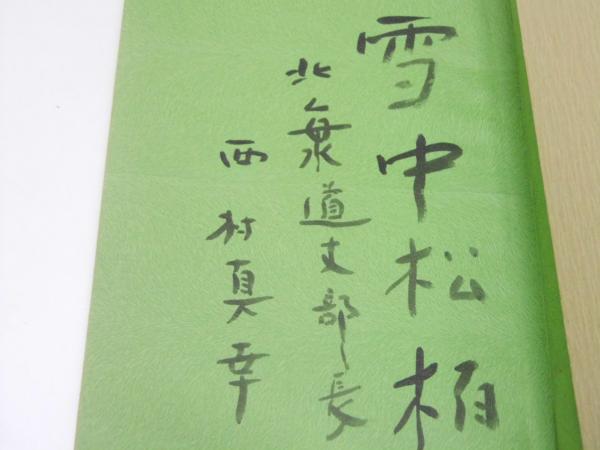 雪中松柏
北海道支部長
西村真幸